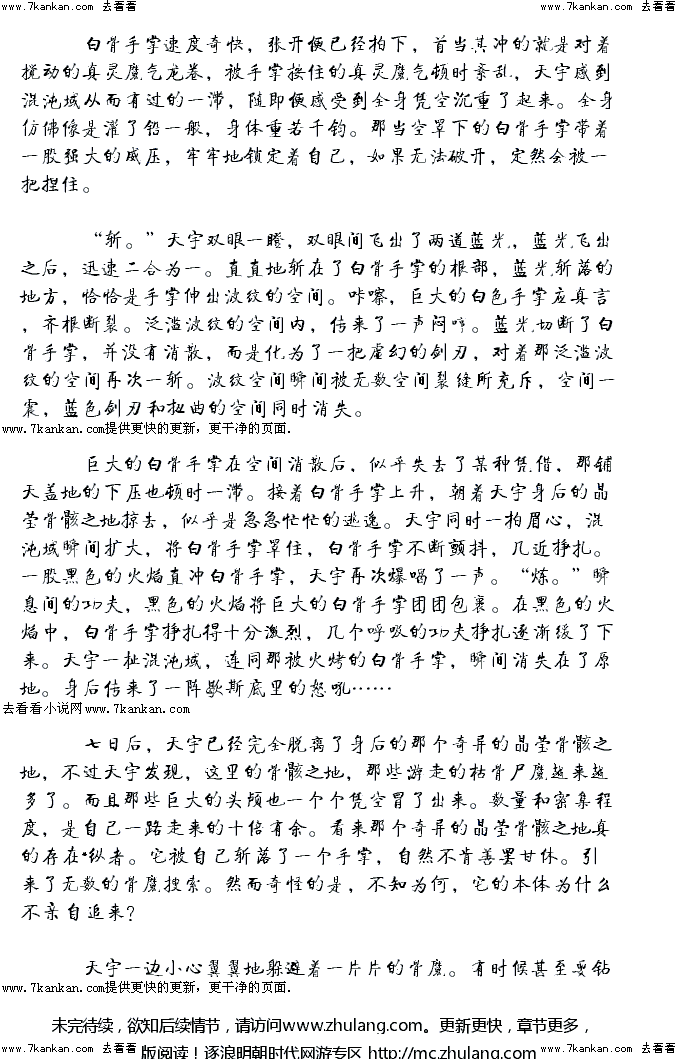 www.7kankan.com 去看看 www.7kankan.com 去看看
白骨手掌速度奇快，张开便已经拍下，首当其冲的就是对着
搅动的真灵魔气龙卷，被手掌按住的真灵魔气顿时紊乱，天宇感到
混沌域从而有过的一滞，随即便感受到全身凭空沉重了起来。全身
仿佛像是灌了铅一般，身体重若千钧。那当空罩下的白骨手掌带着
一股强大的威压，牢牢地锁定着自己，如果无法破开，定然会被一
把捏住。
“斩。”天宇双眼一瞪，双眼间飞出了两道蓝光，蓝光飞出
之后，迅速二合为一。直直地斩在了白骨手掌的根部，蓝光斩落的
地方，恰恰是手掌伸出波纹的空间。咔嚓，巨大的白色手掌应真言
，齐根断裂。泛滥波纹的空间内，传来了一声闷哼。蓝光切断了白
骨手掌，并没有消散，而是化为了一把虚幻的剑刃，对着那泛滥波
纹的空间再次一斩。波纹空间瞬间被无数空间裂缝所充斥，空间一
震，蓝色剑刃和扭曲的空间同时消失。
www.7kankan.com提供更快的更新，更干净的页面.
巨大的白骨手掌在空间消散后，似乎失去了某种凭借，那铺
天盖地的下压也顿时一滞。接着白骨手掌上升，朝着天宇身后的晶
莹骨骸之地掠去，似乎是急急忙忙的逃逸。天宇同时一拍眉心，混
沌域瞬间扩大，将白骨手掌罩住，白骨手掌不断颤抖，几近挣扎。
一股黑色的火焰直冲白骨手掌，天宇再次爆喝了一声。“炼。”瞬
息间的功夫，黑色的火焰将巨大的白骨手掌团团包裹。在黑色的火
焰中，白骨手掌挣扎得十分激烈，几个呼吸的功夫挣扎逐渐缓了下
来。天宇一扯混沌域，连同那被火烤的白骨手掌，瞬间消失在了原
地。身后传来了一阵歇斯底里的怒吼……
去看看小说网www.7kankan.com
七日后，天宇已经完全脱离了身后的那个奇异的晶莹骨骸之
地，不过天宇发现，这里的骨骸之地，那些游走的枯骨尸魔越来越
多了。而且那些巨大的头颅也一个个凭空冒了出来。数量和密集程
度，是自己一路走来的十倍有余。看来那个奇异的晶莹骨骸之地真
的存在·纵者。它被自己斩落了一个手掌，自然不肯善罢甘休。引
来了无数的骨魔搜索。然而奇怪的是，不知为何，它的本体为什么
不亲自追来？
天宇一边小心翼翼地躲避着一片片的骨魔。有时候甚至要钻
www.7kankan.com提供更快的更新，更干净的页面.
未完待续，欲知后续情节，请访问www.zhulang.com。更新更快，章节更多，
版阅读！逐浪明朝时代网游专区 http://mc.zhulang.com
www.7kankan.com 去看看 www.7kankan.com 去看看